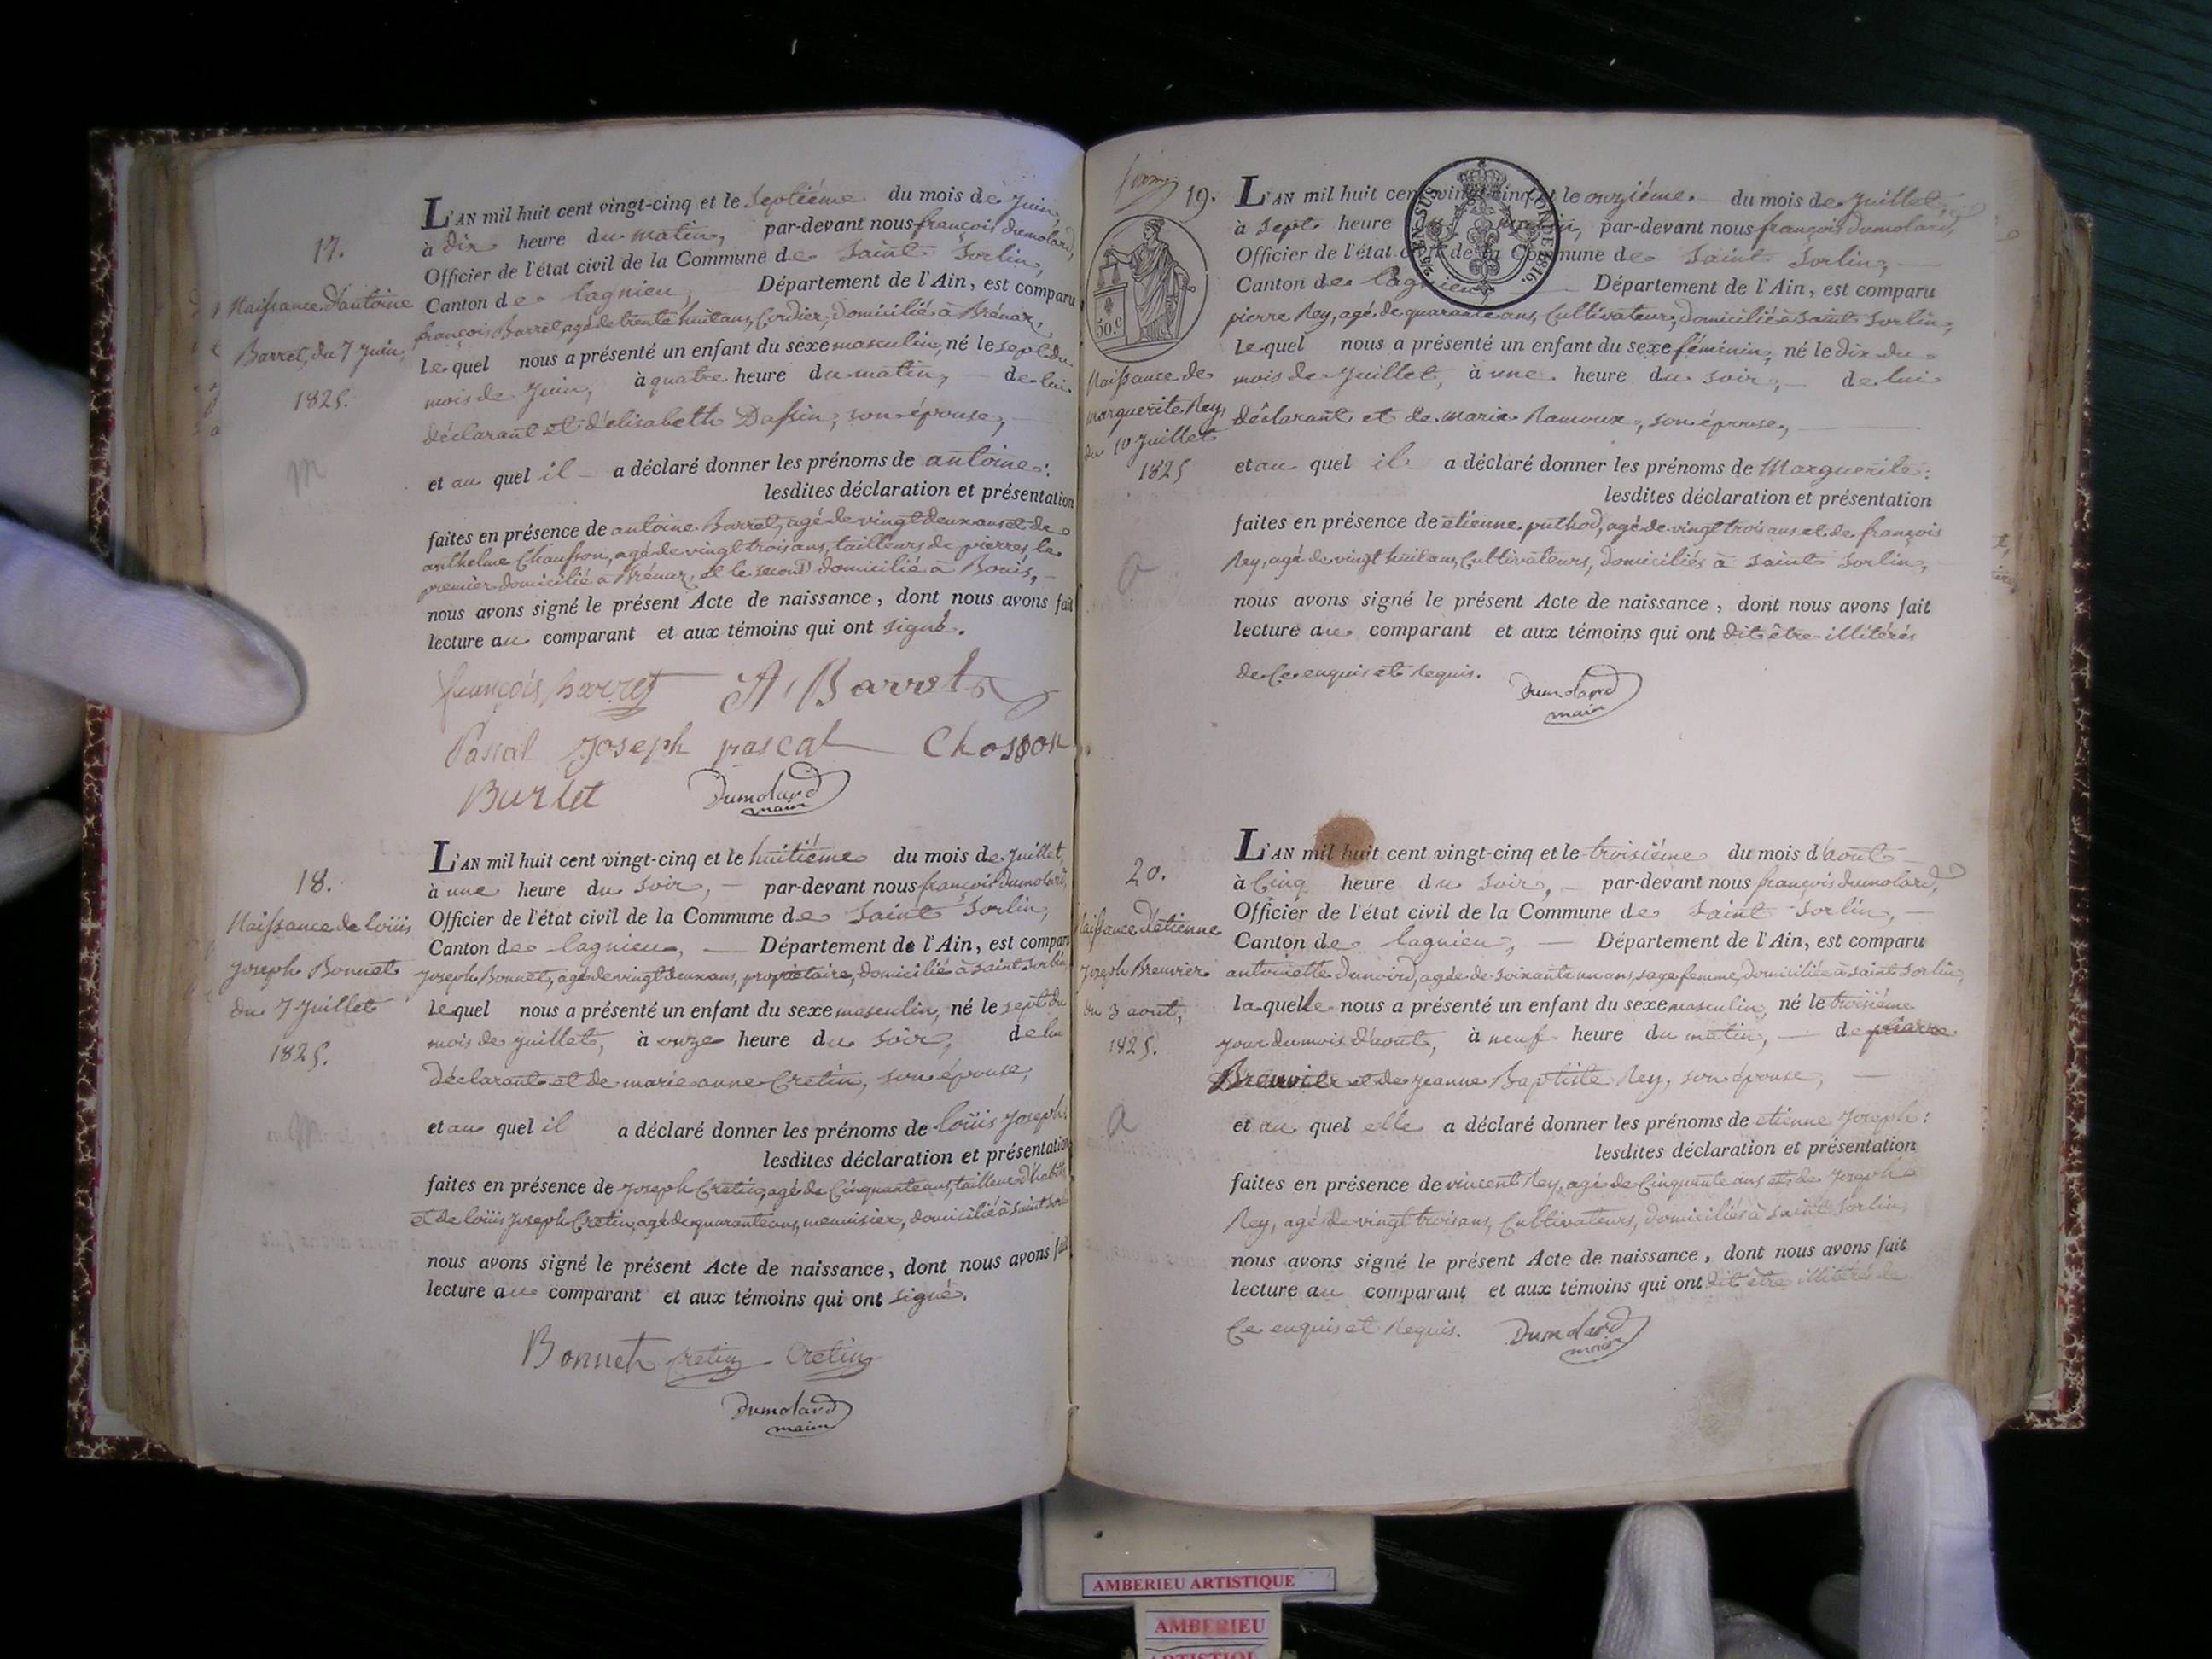 17.
Naissance d'antoine
Barret, du 7 Juin,
1825.
L'AN mil huit cent vingt-cinq et le septiéme du mois de Juin,
à dix heure du matin, par-devant nous françois Dumolard,
Officier de l'état civil de la Commune de Saint Sorlin,
Canton de lagnieu, Département de l'Ain, est comparu
françois Barret, agé de trente huit ans, Cordier, domicilié à Brénaz,
Le quel nous a présenté un enfant du sexe masculin, né le sept du
mois de Juin, à quatre heure du matin, de lui
déclarant et d'élisabeth Dassin, son épouse,
et au quel il a déclaré donner les prénoms de antoine:
lesdites déclaration et présentation
faites en présence de antoine Barret, agé de vingt deux ans et de
anthelme Chausson, agé de vingt trois ans, tailleurs de pierres, le
premier domicilié à Brénaz, et le second domicilié à Bouis,
nous avons signé le présent Acte de naissance, dont nous avons fait
lecture au comparant et aux témoins qui ont signé.
françois barret A Barret
Pascal Joseph pascal Chosson
Burlet Dumolard
maire
18.
Naissance de loüis
Joseph Bonnet
du 7 Juillet
1825.
L'AN mil huit cent vingt-cinq et le huitiéme du mois de Juillet,
à une heure du soir, par-devant nous françois Dumolard,
Officier de l'état civil de la Commune de Saint Sorlin,
Canton de lagnieu, Département de l'Ain, est comparu
Joseph Bonnet, agé de vingt deux ans, propriétaire, domicilié à saint Sorlin
Le quel nous a présenté un enfant du sexe masculin, né le sept du
mois de juillet, à onze heure du soir, de lui
déclarant et de marie anne Cretin, son épouse,
et au quel il a déclaré donner les prénoms de loüis Joseph:
lesdites déclaration et présentation
faites en présence de Joseph Cretin, agé de Cinquante ans, tailleur d'habits
et de loüis Joseph Cretin, agé de quarante ans, menuisier, domicilié à saint sorlin
nous avons signé le présent Acte de naissance, dont nous avons fait
lecture au comparant et aux témoins qui ont signé.
Bonnet Cretin Cretin
Dumolard
maire
19.
50.c
2/5 EN-SUS
LOI DE 1816.
Naissance de
marguerite Rey,
du 10 Juillet
1825
L'AN mil huit cent vingt-cinq et le onziéme du mois de Juillet,
à sept heure du matin, par-devant nous françois Dumolard,
Officier de l'état civil de la Commune de Saint Sorlin,
Canton de lagnieu, Département de l'Ain, est comparu
pierre Rey, agé de quarante ans, Cultivateur, domicilié à saint Sorlin,
Le quel nous a présenté un enfant du sexe féminin, né le dix du
mois de Juillet, à une heure du soir, de lui
déclarant et de marie Ramoux, son épouse,
et au quel il a déclaré donner les prénoms de Marguerite:
lesdites déclaration et présentation
faites en présence de étienne puthod, agé de vingt trois ans et de françois
Rey, agé de vingt huit ans, Cultivateurs, domiciliés à saint Sorlin,
nous avons signé le présent Acte de naissance, dont nous avons fait
lecture au comparant et aux témoins qui ont dit être illitérés
de Ce enquis et Requis.
Dumolard
maire
20.
Naissance d'etienne
Joseph Breuvier
du 3 aout,
1825.
L'AN mil huit cent vingt-cinq et le troisiéme du mois d'aout
à Cinq heure du soir, par-devant nous françois Dumolard,
Officier de l'état civil de la Commune de Saint Sorlin,
Canton de lagnieu, Département de l'Ain, est comparu
antoinette Dunoird, agée de soixante un ans, sage femme, domiciliée à saint Sorlin,
la quelle nous a présenté un enfant du sexe masculin, né le troisiéme
jour du mois d'aout, à neuf heure du matin, de pierre
Breuvier et de jeanne Baptiste Rey, son épouse,
et au quel elle a déclaré donner les prénoms de etienne Joseph:
lesdites déclaration et présentation
faites en présence de vincent Rey, agé de Cinquante ans et de Joseph
Rey, agé de vingt trois ans, Cultivateurs, domiciliés à saint Sorlin
nous avons signé le présent Acte de naissance, dont nous avons fait
lecture au comparant et aux témoins qui ont dit être illitérés de
Ce enquis et Requis. Dumolard
maire
AMBERIEU ARTISTIQUE
AMBERIEU
ARTISTIQUE